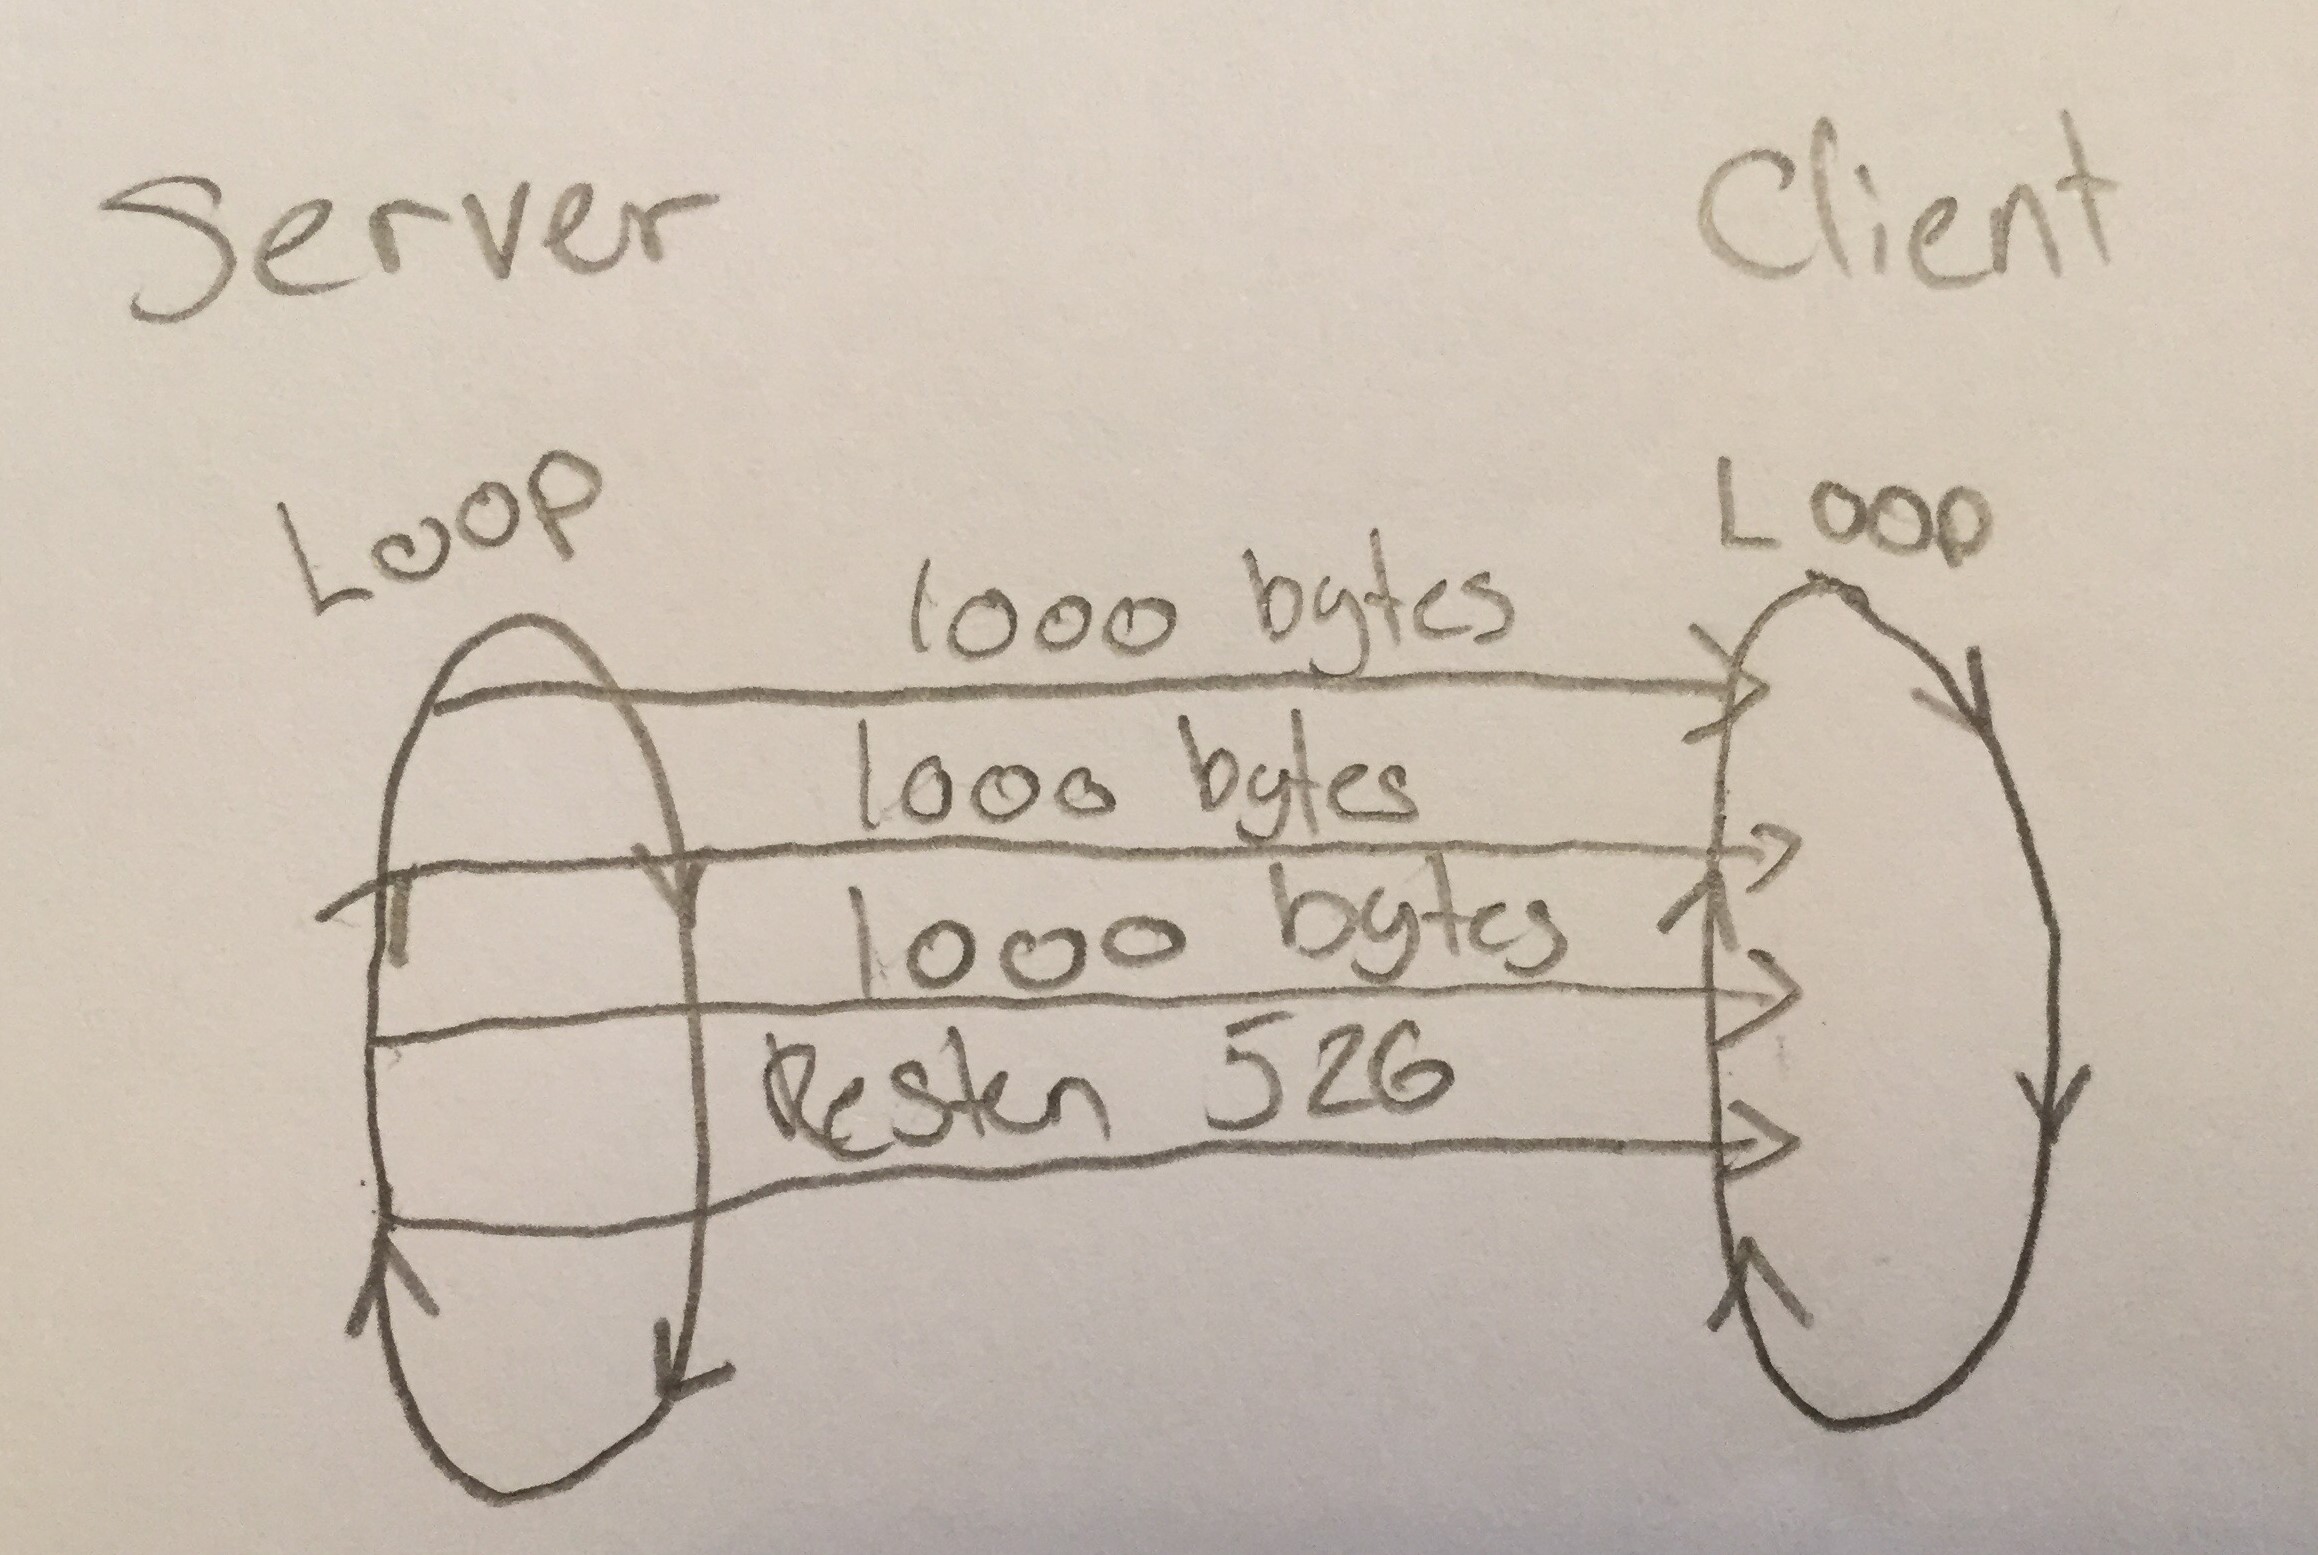 Server Client
Loop Loop
1000 bytes
1000 bytes
1000 bytes
Resten 526